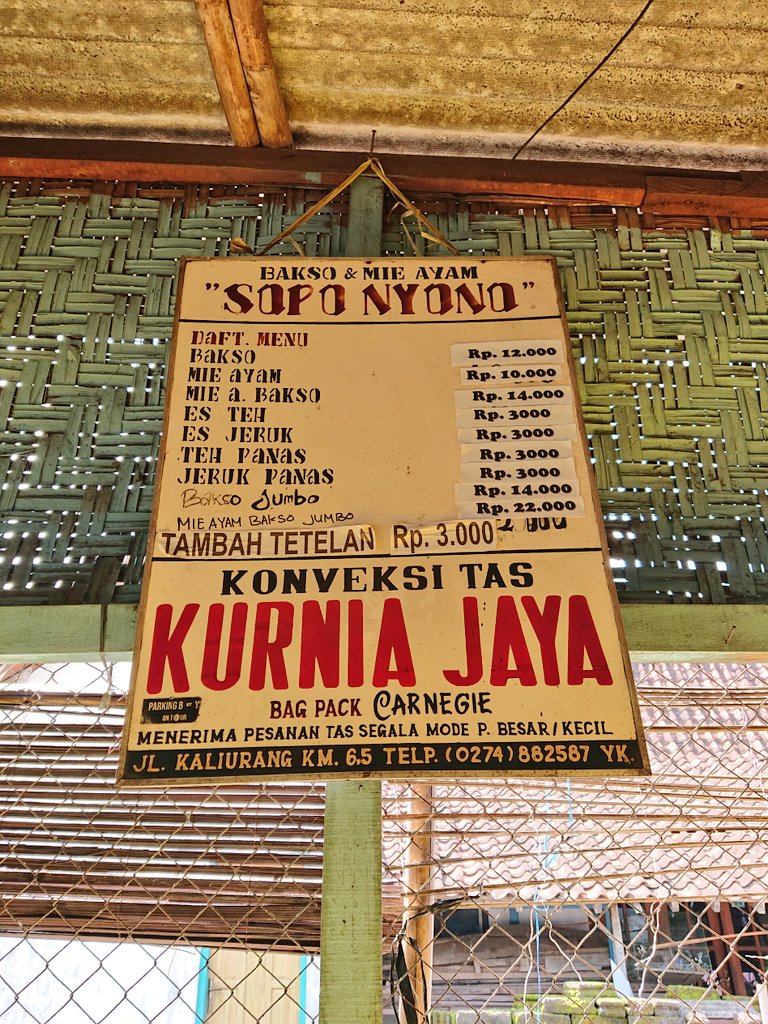 BAKSO & MIE AYAM
"SOPO NYONO"
DAFT. MENU
BAKSO Rp. 12.000
MIE AYAM Rp. 10.000
MIE A. BAKSO Rp. 14.000
ES TEH Rp. 3000
ES JERUK Rp. 3000
TEH PANAS Rp. 3000
JERUK PANAS Rp. 3000
Bakso Jumbo Rp. 14.000
MIE AYAM BAKSO JUMBO Rp. 22.000
TAMBAH TETELAN Rp. 3.000
KONVEKSI TAS
KURNIA JAYA
PARKING B
ON TOUR
BAG PACK CARNEGIE
MENERIMA PESANAN TAS SEGALA MODE P. BESAR/KECIL
JL. KALIURANG KM. 6.5 TELP. (0274) 882587 YK.